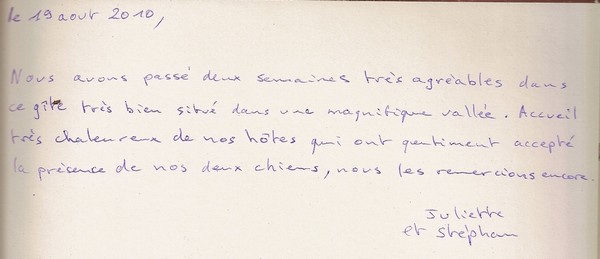 le 19 aout 2010,
Nous avons passé deux semaines très agréables dans
ce gîte très bien situé dans une magnifique vallée. Accueil
très chaleureux de nos hôtes qui ont gentiment accepté
la présence de nos deux chiens, nous les remercions encore.
Juliette
et Stéphan